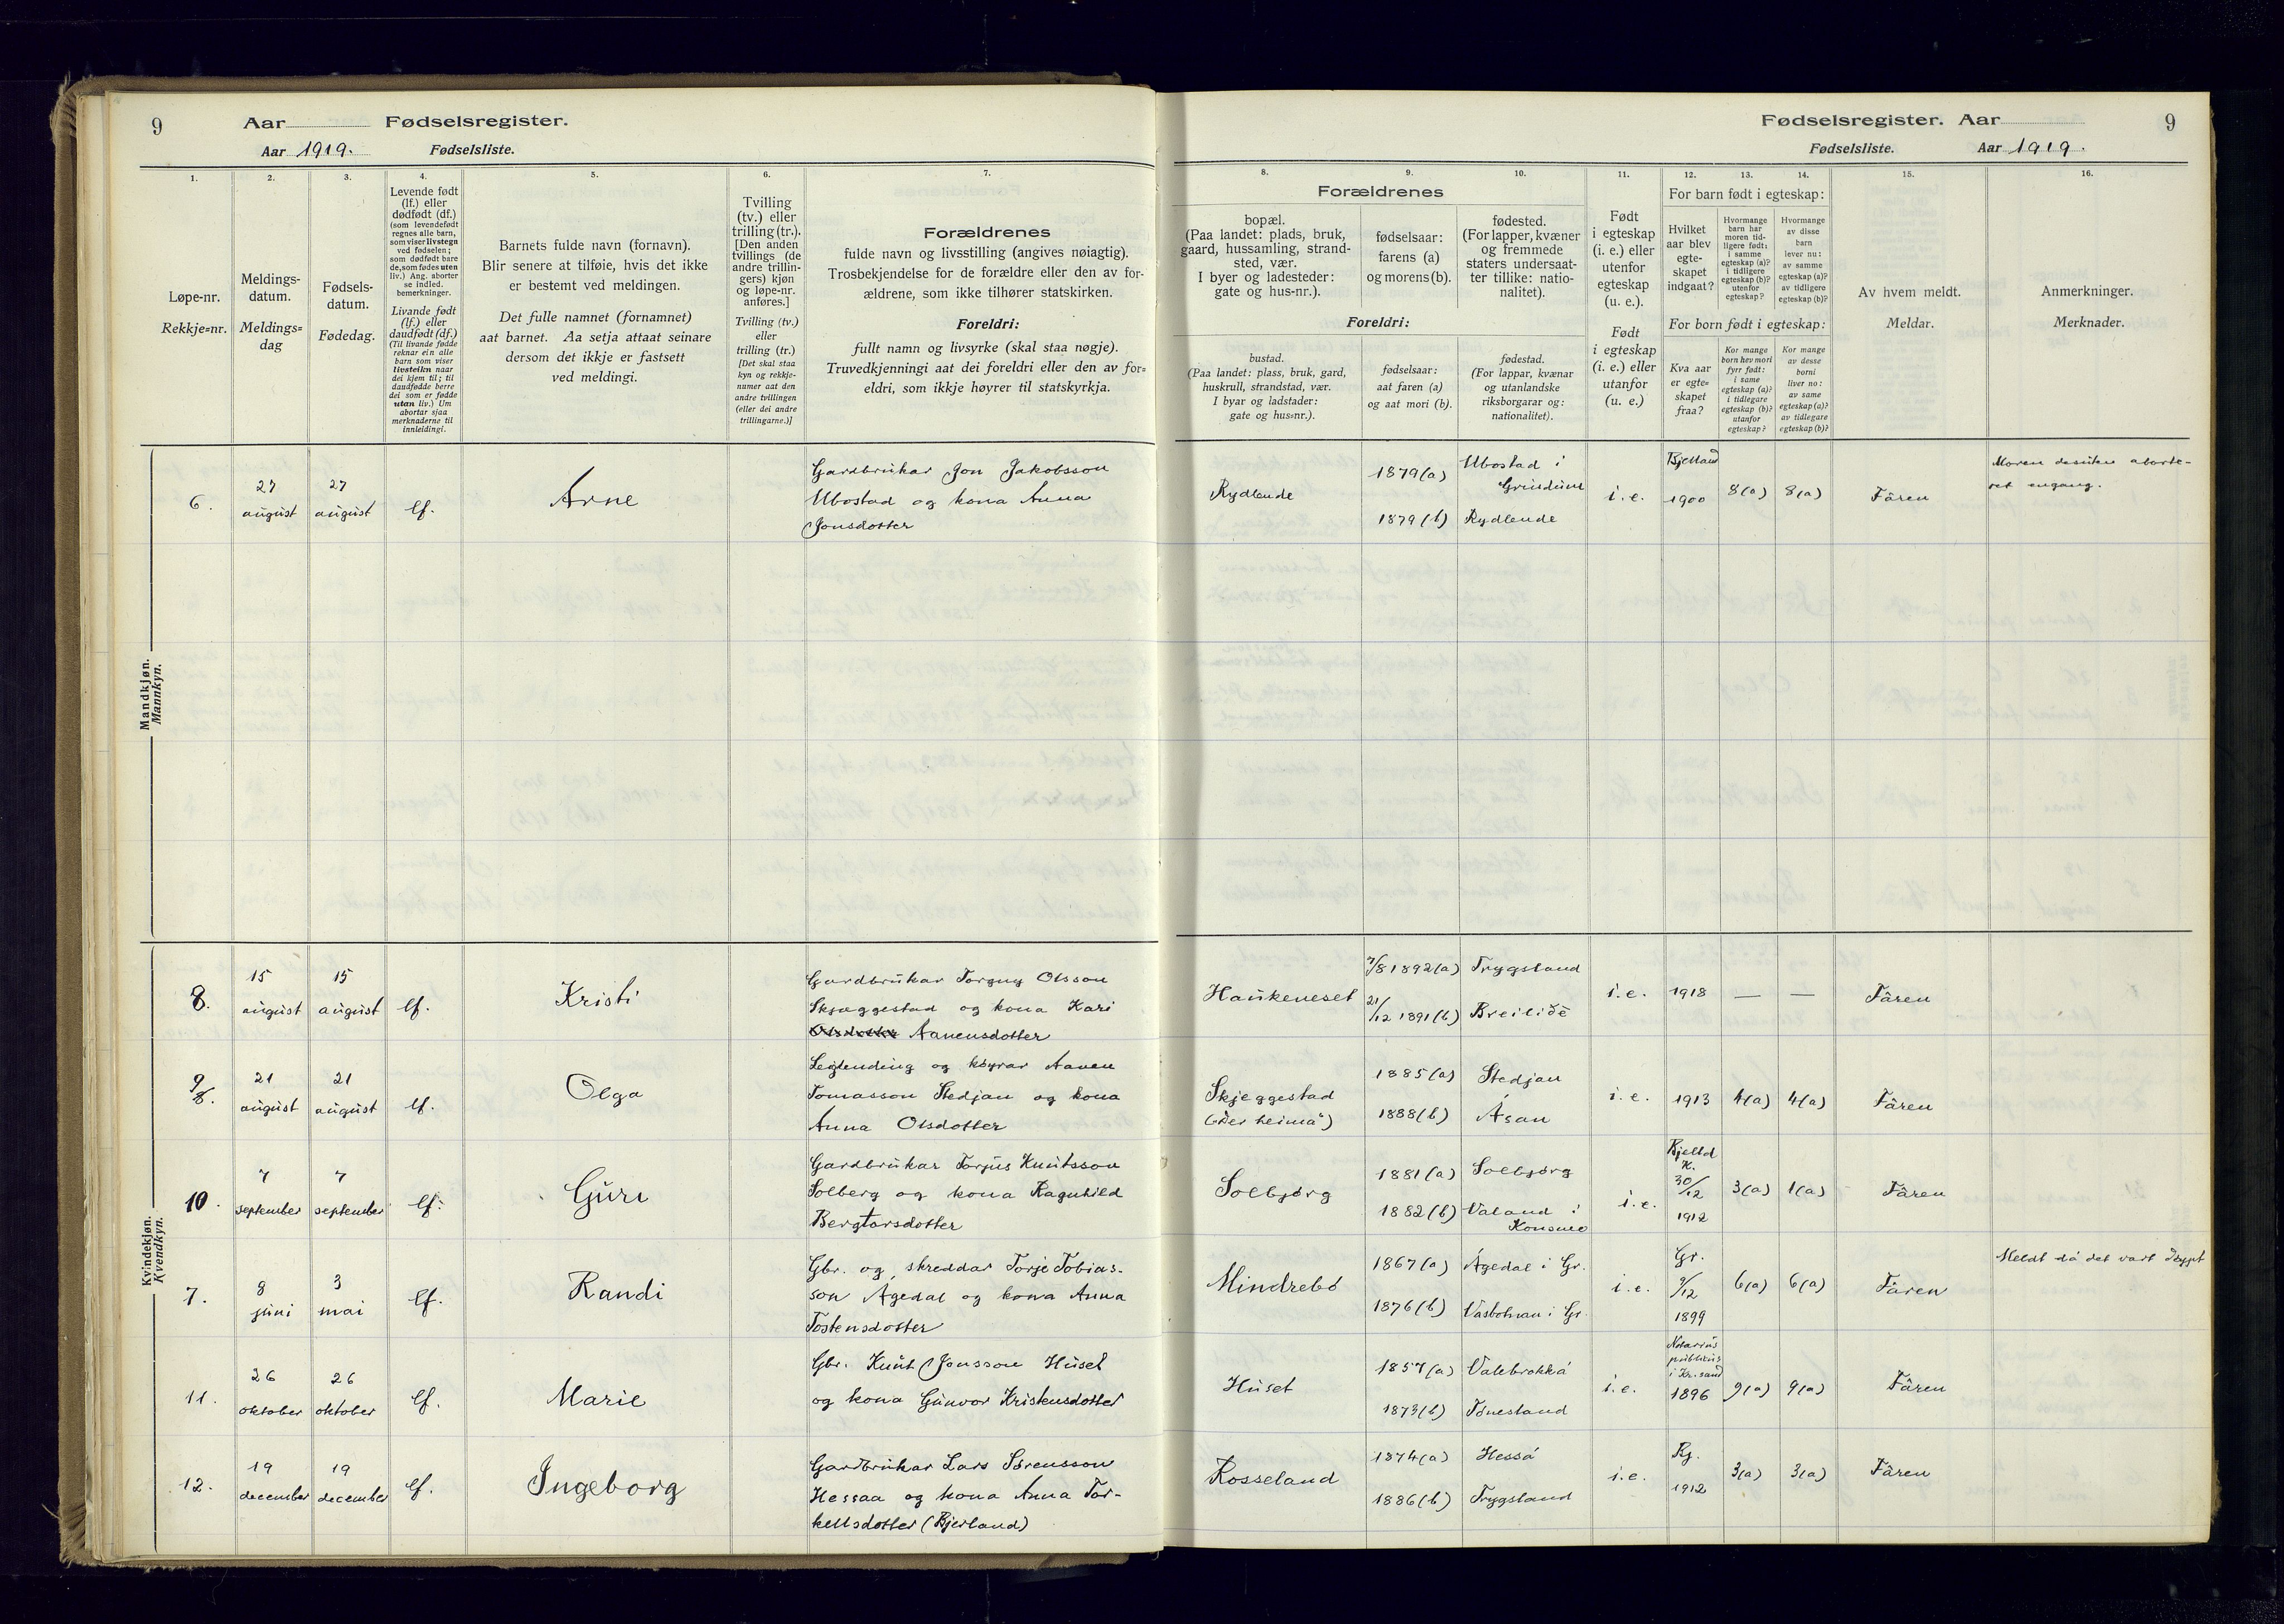 9
Aar
Fødselsregister.
Aar 1919.
Fødselsliste.
1.
Løpe-nr.
Rekkje=nr.
2.
Meldings-
datum.
Meldings=
dag
3.
Fødsels-
datum.
Fødedag.
4.
Levende født
(lf.) eller
dødfødt (df.)
(som levendefødt
regnes alle barn,
som viser livstegn
ved fødselen;
som dødfødt bare
de, som fødes uten
liv.) Ang. aborter
se indled.
bemerkninger.
Livande født
(lf.) eller
daudfødt (df.)
(Til livande fødde
reknar ein alle
barn som viser
livsteikn naar
dei kjem til; til
daudfødde berre
dei som er fødde
utan liv.) Um
abortar sjaa
merknaderne til
innleidingi.
5.
Barnets fulde navn (fornavn).
Blir senere at tilføie, hvis det ikke
er bestemt ved meldingen.
Det fulle namnet (fornamnet)
aat barnet. Aa setja attaat seinare
dersom det ikkje er fastsett
ved meldingi.
6.
Tvilling
(tv.) eller
trilling (tr.).
[Den anden
tvillings (de
andre trillin-
gers) kjøn
og løpe-nr.
anføres.]
Tvilling (tv.)
eller
trilling (tr.)
[Det skal staa
kyn og rekkje-
numer aat den
andre tvillingen
(eller dei andre
trillingarne.)]
7.
Forældrenes
fulde navn og livsstilling (angives nøiagtig).
Trosbekjendelse for de forældre eller den av for-
ældrene, som ikke tilhører statskirken.
Foreldri:
fullt namn og livsyrke (skal staa nøgje).
Truvedkjenningi aat dei foreldri eller den av for=
eldri, som ikkje høyrer til statskyrkja.
Mandkjøn.
Mannkyn.
6.
27
august
27
august
lf.
Arne
Gardbrukar Jon Jakobsson
Ubostad og kona Anna
Jonsdotter
Kvindekjøn.
Kvendkyn.
8.
15
august
15
august
lf.
Kristi
Gardbrukar Torgny Olsson
Skjæggestad og kona Kari
Olsdotter Aanensdotter
9/8.
21
august
21
august
lf.
Olga
Leiglending og køyrar Aanen
Tomasson Stedjan og kona
Anna Olsdotter
10.
7
september
7
september
lf.
Guri
Gardbrukar Torjus Knutsson
Solberg og kona Ragnhild
Bergtorsdotter
7.
8
juni
3
mai
lf.
Randi
Gbr. og skreddar Torje Tobias-
son Ågedal og kona Anna
Tostensdotter
11.
26
oktober
26
oktober
lf.
Marie
Gbr. Knut Jonsson Huset
og kona Gunvor Kristensdotter
12.
19
december
19
december
lf.
Ingeborg
Gardbrukar Lars Sørensson
Hessaa og kona Anna Tor-
kellsdotter (Bjerland)
Fødselsregister. Aar
9
Fødselsliste.
Aar 1919.
8.
Forældrenes
bopæl.
(Paa landet: plads, bruk,
gaard, hussamling, strand-
sted, vær.
I byer og ladesteder:
gate og hus-nr.).
Foreldri:
bustad.
(Paa landet: plass, bruk, gard,
huskrull, strandstad, vær.
I byar og ladstader:
gate og hus=nr.).
9.
fødselsaar:
farens (a)
og morens (b).
fødselsaar:
aat faren (a)
og aat mori (b).
10.
fødested.
(For lapper, kvæner
og fremmede
staters undersaat-
ter tillike: natio-
nalitet).
fødestad.
(For lappar, kvænar
og utanlandske
riksborgarar og:
nationalitet).
11.
Født
i egteskap
(i. e.) eller
utenfor
egteskap
(u. e.).
Født
i egteskap
(i. e.) eller
utanfor
(u. e.)
12.
For barn født i egteskap:
Hvilket
aar blev
egte-
skapet
indgaat?
For born født i egteskap:
Kva aar
er egte=
skapet
fraa?
13.
Hvormange
barn har
moren tid-
ligere født:
i samme
egteskap (a)?
i tidligere
egteskap (b)?
utenfor
egteskap?
Kor mange
born hev mori
fyrr født:
i same
egteskap (a)?
i tidlegare
egteskap (b)?
utanfor
egteskap?
14.
Hvormange
av disse
barn
lever nu:
av samme
egteskap (a)?
av tidligere
egteskap (b)?
Kor mange
av desse
borni
liver no:
av same
egteskap (a)?
av tidlegare
egteskap (b)?
15.
Av hvem meldt.
Meldar.
16.
Anmerkninger.
Merknader.
Rydlende
1879(a)
1879(b)
Ubostad i
Grindum
Rydlende
i.e.
Bjelland
1900
8(a)
8(a)
Fâren
Moren desuten aborte-
ret engang.
Haukeneset
7/8 1892(a)
21/12 1891(b)
Trygsland
Breilidè
i.e.
1918
—
—
Fâren
Skjeggestad
("der heima")
1885(a)
1888(b)
Stedjan
Åsan
i.e.
1913
4(a)
4(a)
Fâren
Solbjørg
1881(a)
1882(b)
Solbjørg
Valand i
Konsmo
i.e.
Bjelld
K.
30/12
1912
3(a)
1(a)
Fâren
Mindrebø
1867(a)
1876(b)
Ågedal i Gr.
Våsbotnan i Gr.
i.e.
Gr.
9/12
1899
6(a)
6(a)
Fâren
Meldt då det vart døypt
Huset
1857(a)
1873(b)
Valebrokkå
Tonesland
i.e.
Notarius
publicus
i Kr.sand
1896
9(a)
9(a)
Fâren
Rosseland
1874(a)
1886(b)
Hesså
Trygsland
i.e.
Bj.
1912
3(a)
3(a)
Fâren